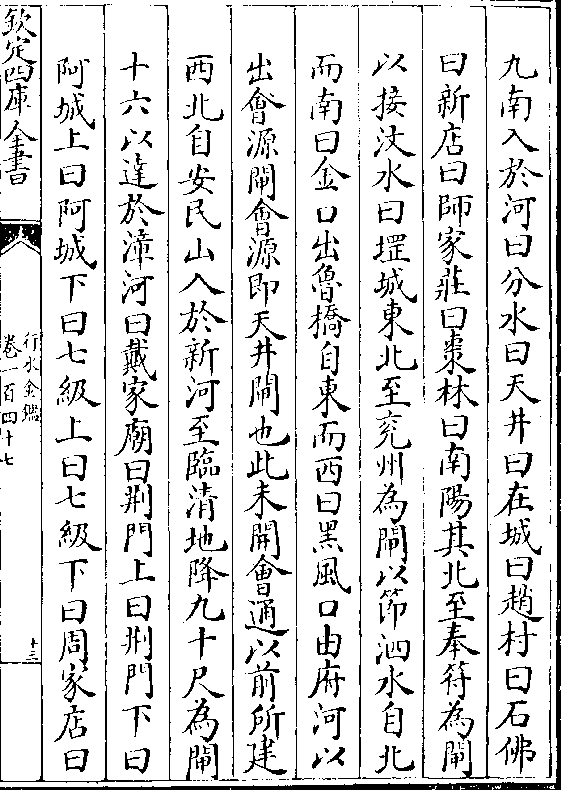 九南入於河曰分水曰天井曰在城曰趙村曰石佛
曰新店曰師家莊曰棗林曰南陽其北至奉符為閘
以接汶水曰堽城東北至兖州為閘以節泗水自北
而南曰金口出魯橋自東而西曰黑風口由府河以
出會源閘會源即天井閘也此未開會通以前所建
西北自安民山入於新河至臨清地降九十尺為閘
十六以達於漳河曰戴家廟曰荆門上曰荆門下曰
阿城上曰阿城下曰七級上曰七級下曰周家店曰
欽定四庫全書
行水金鑑
卷一百四十七
十三